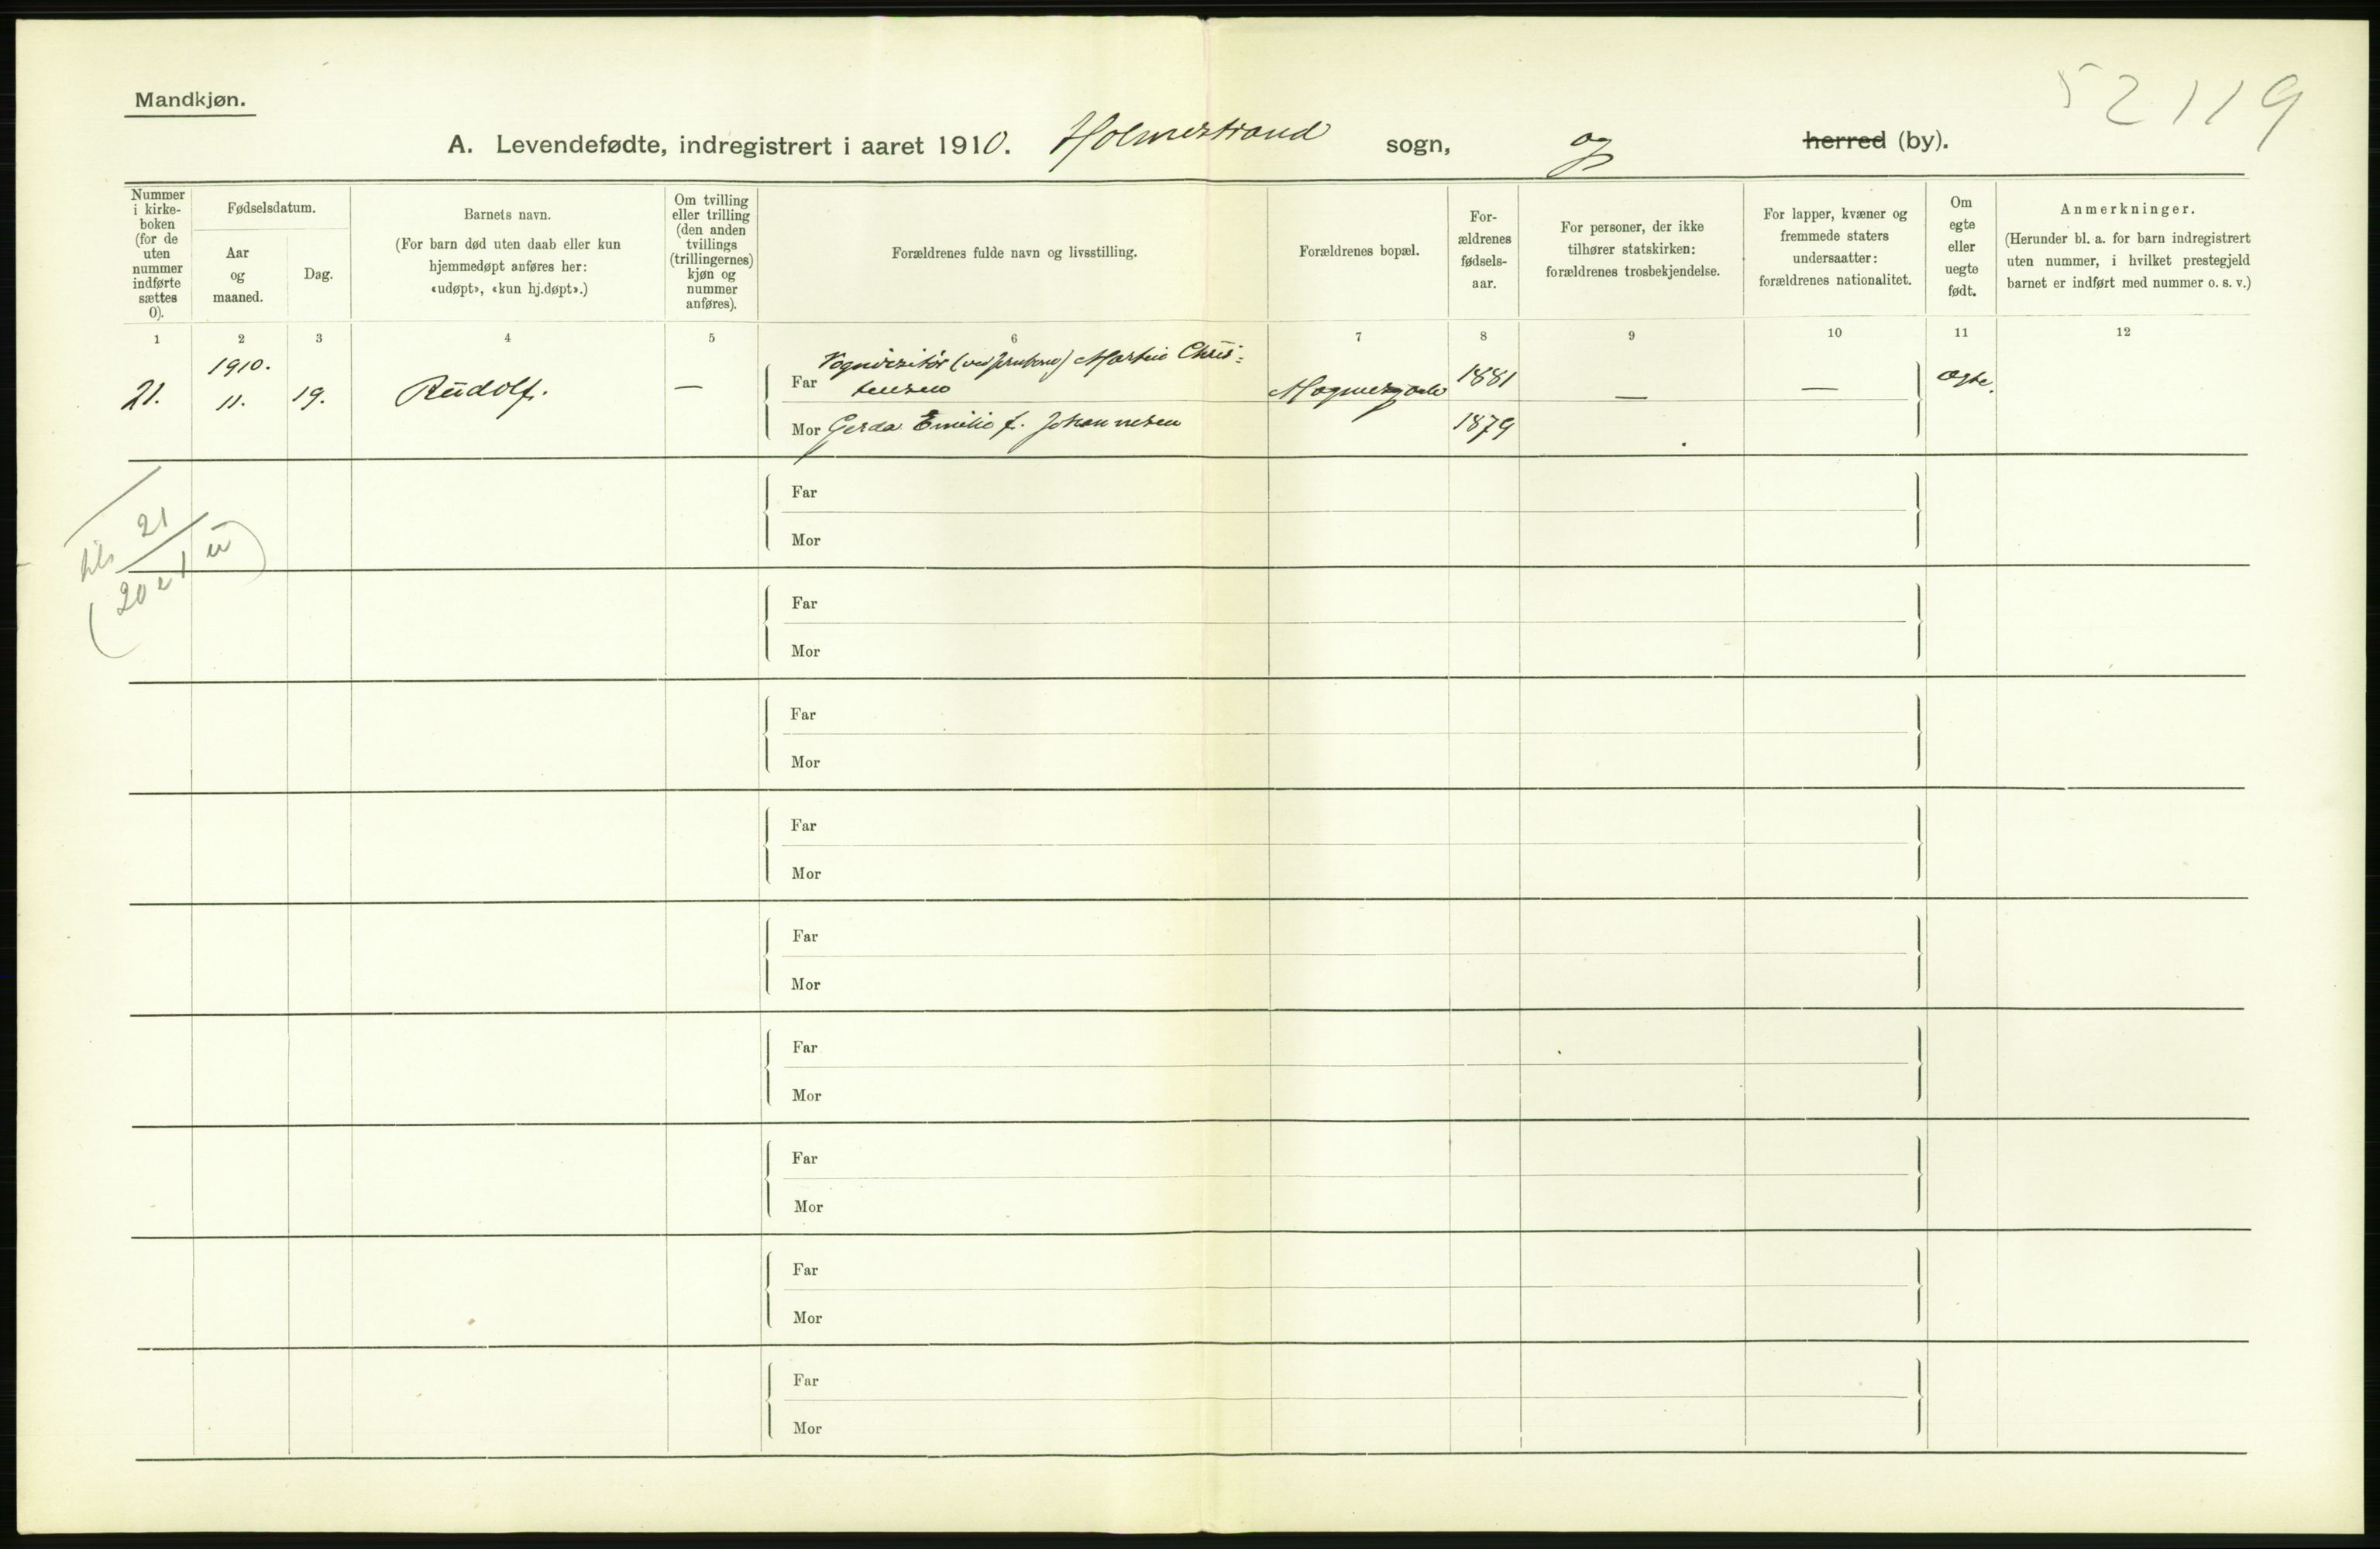 Mandkjøn.
52119
A. Levendefødte, indregistrert i aaret 1910. Holmestrand sogn, og herred (by).
Nummer i kirkeboken (for de uten nummer indførte sættes 0).
Fødselsdatum.
Aar og maaned.
Dag.
Barnets navn.
(For barn død uten daab eller kun hjemmedøpt anføres her: «udøpt», «kun hj.døpt».)
Om tvilling eller trilling (den anden tvillings (trillingernes) kjøn og nummer anføres).
Forældrenes fulde navn og livsstilling.
Forældrenes bopæl.
Forældrenes fødselsaar.
For personer, der ikke tilhører statskirken: forældrenes trosbekjendelse.
For lapper, kvæner og fremmede staters undersaatter: forældrenes nationalitet.
Om egte eller uegte født.
Anmerkninger.
(Herunder bl. a. for barn indregistrert uten nummer, i hvilket prestegjeld barnet er indført med nummer o. s. v.)
1 2 3 4 5 6 7 8 9 10 11 12
21. 1910. 11. 19. Rudolf. —
Far Vognvisitør (ved Jernbane) Martin Chris-
tensen
Magnesgade 1881 — — Egte.
Mor Gerda Emilie f. Johannesen 1879
21
20 1 u
Far
Mor
Far
Mor
Far
Mor
Far
Mor
Far
Mor
Far
Mor
Far
Mor
Far
Mor
Far
Mor